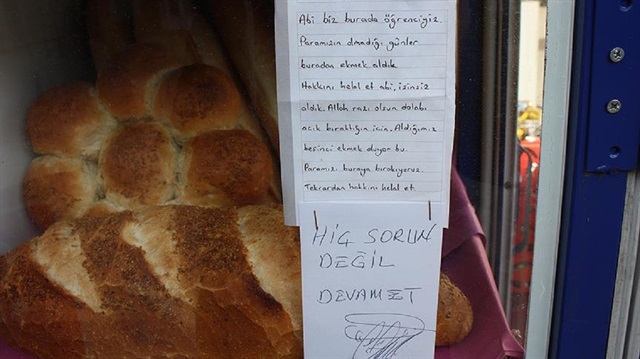 Abi biz burada öğrenciyiz.
Paramızın olmadığı günler
buradan ekmek aldık
Hakkını helal et abi, izinsiz
aldık. Allah razı olsun dolabı
açık bıraktığın için. Aldığımız
beşinci ekmek oluyor bu.
Paramızı buraya bırakıyoruz.
Tekrardan hakkını helal et.
HİÇ SORUN
DEĞİL
DEVAMET